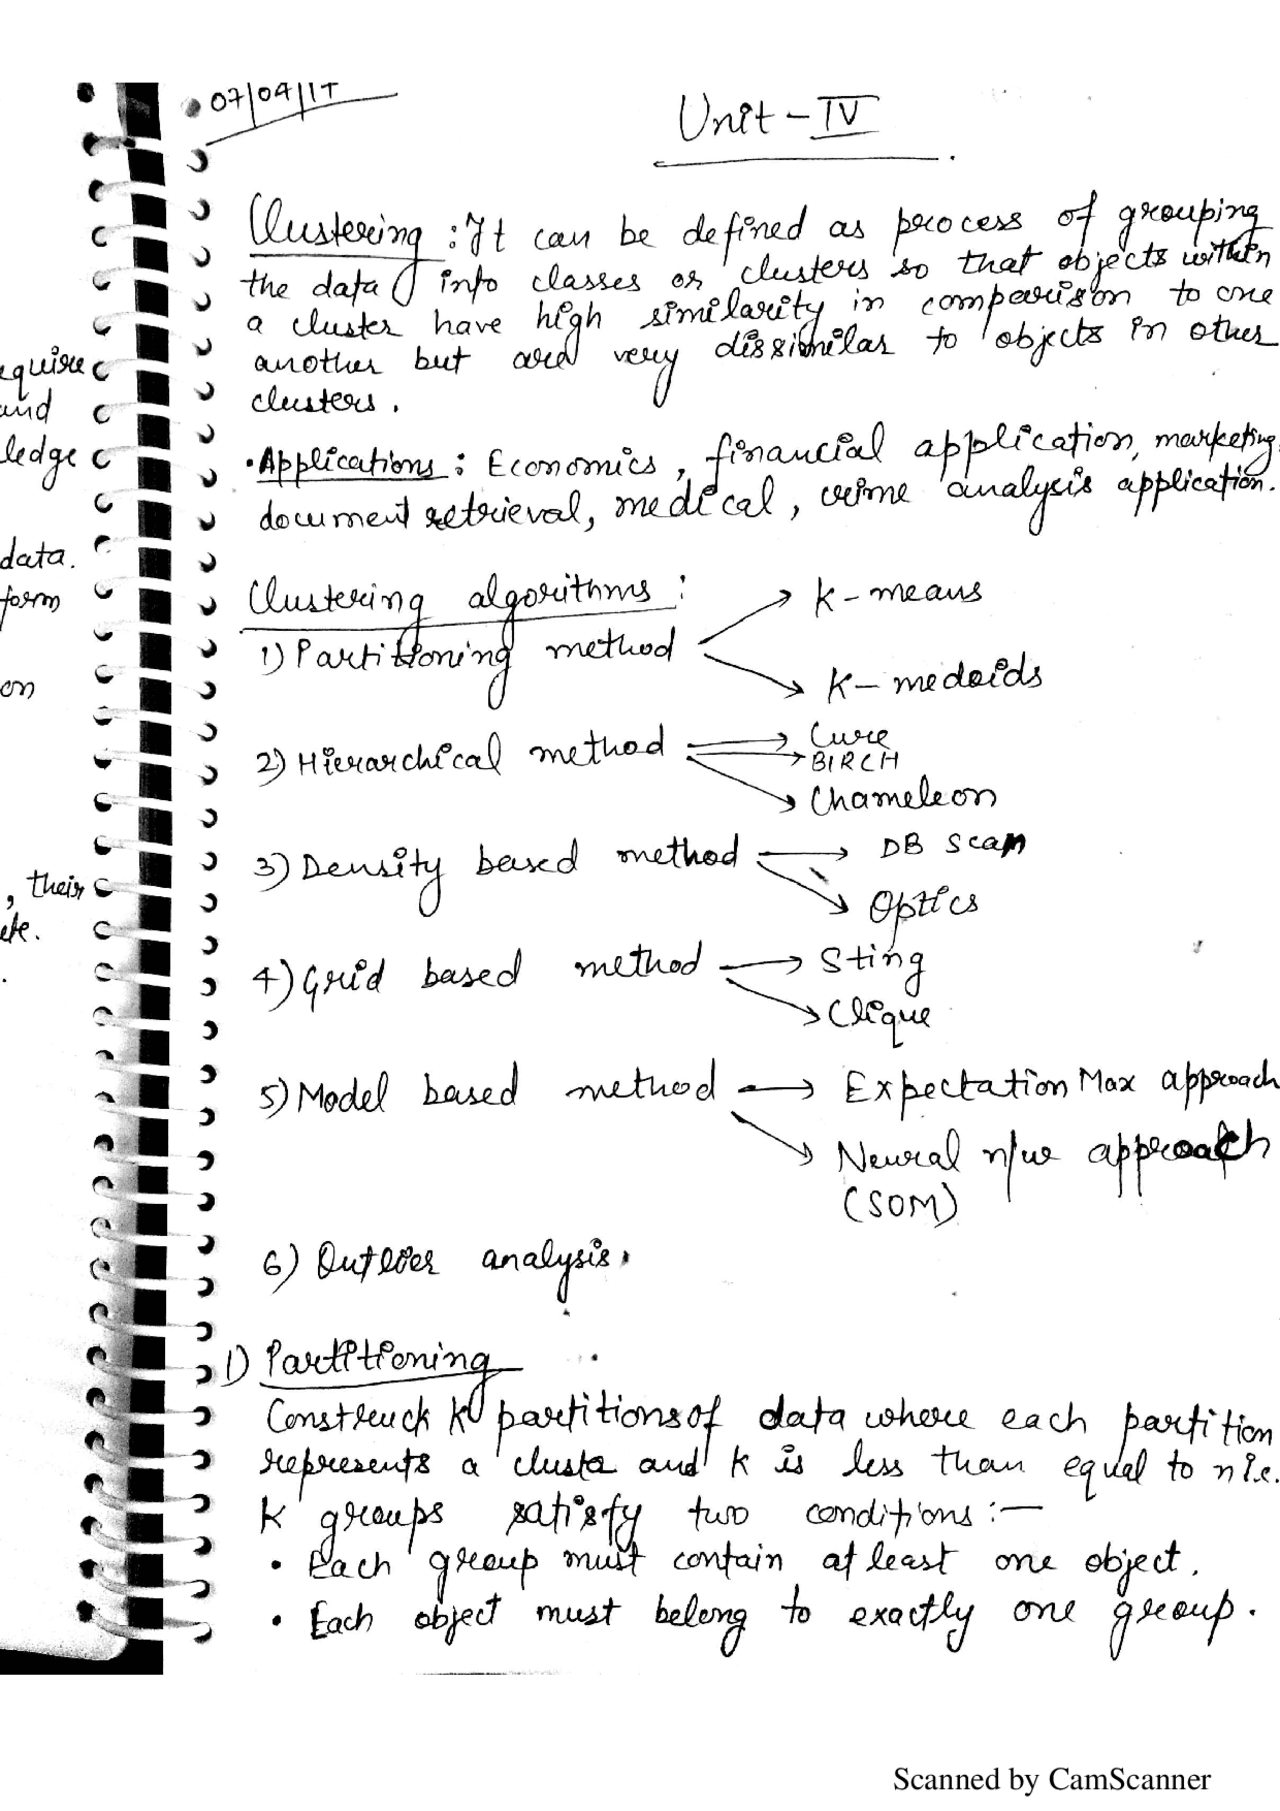 07/04/17
Unit - IV
Clustering : It can be defined as process of grouping
the data into classes or clusters so that objects within
a cluster have high similarity in comparison to one
another but are very dissimilar to objects in other
clusters.
• Applications : Economics, financial application, marketing,
document retrieval, medical, crime analysis application.
Clustering algorithms :
1) Partitioning method → K - means
→ K - medoids
2) Hierarchical method → Cure
→ BIRCH
→ Chameleon
3) Density based method → DB Scan
→ Optics
4) Grid based method → Sting
→ Clique
5) Model based method → Expectation Max approach
→ Neural n/w approach
(SOM)
6) Outlier analysis.
1) Partitioning
Construck K partitions of data where each partition
represents a cluster and K is less than equal to n i.e.
K groups satisfy two conditions :-
• Each group must contain at least one object.
• Each object must belong to exactly one group.
equire
and
ledge
data.
form
on
, their
etc.
.
Scanned by CamScanner